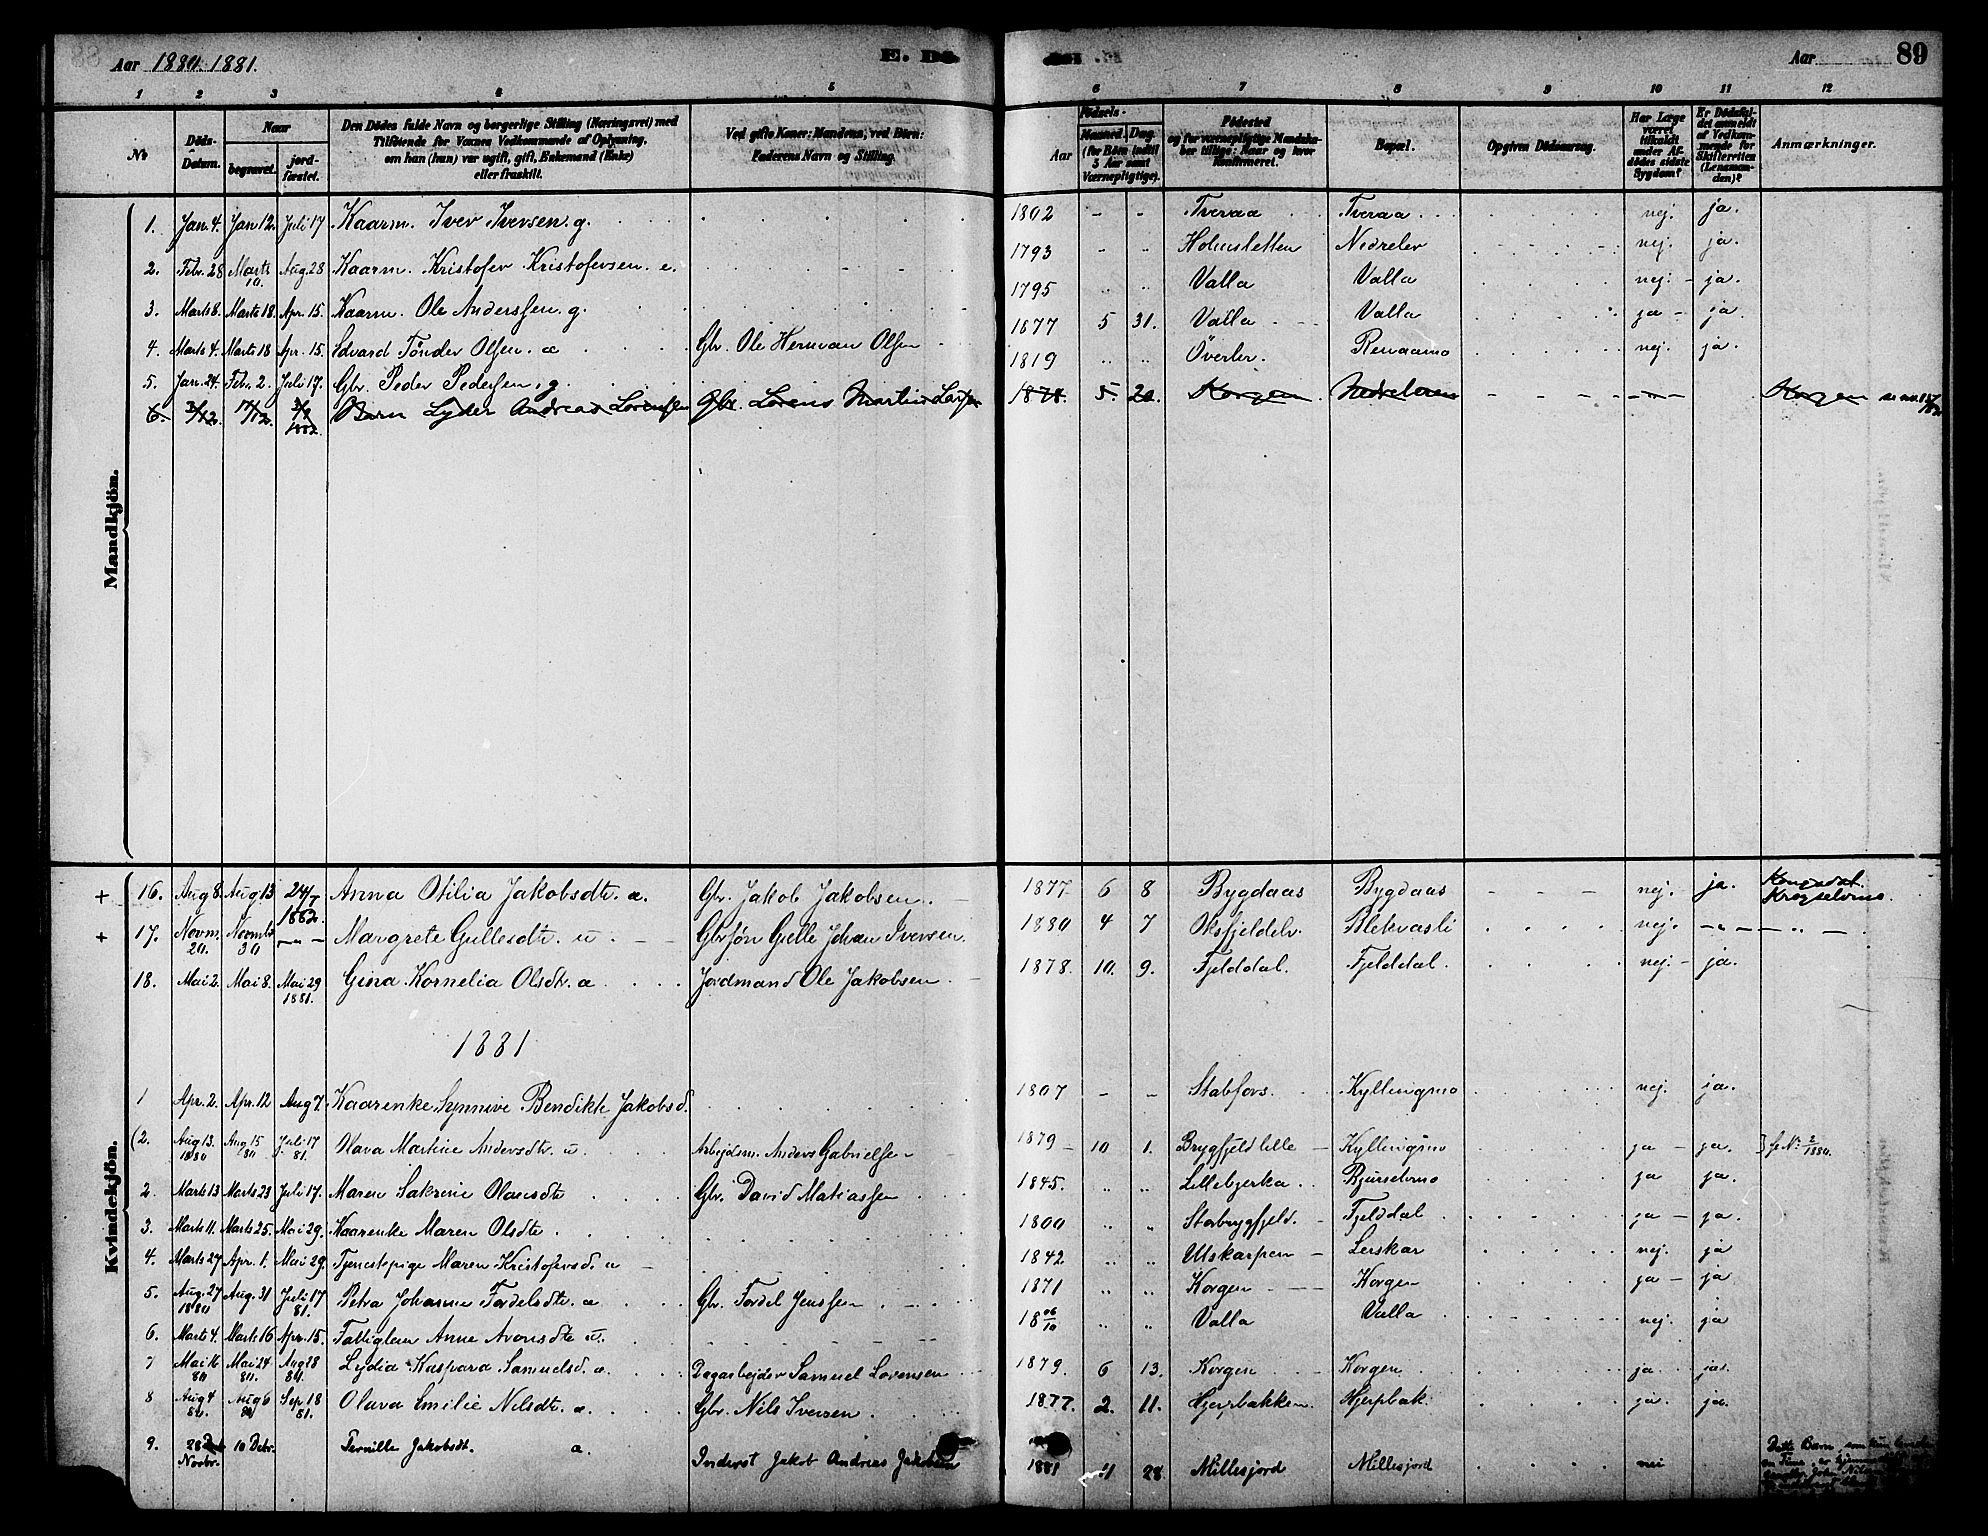 Aar 1880. 1881.
E. Dø
Aar
89
1 2 3 4 5 6 7 8 9 10 11 12
No
Døds-Datum.
Naar
begravet.
jordfæstet.
Den Dødes fulde Navn og borgerlige Stilling (Næringsvei) med
Tilføiende for Voxnes Vedkommende af Oplysning,
om han (hun) var ugift, gift, Enkemand (Enke)
eller fraskilt.
Ved gifte Koner: Mandens, ved Børn:
Faderens Navn og Stilling.
Aar
Fødsels-
Maaned. Dag.
(for Børn indtil
5 Aar samt
Værnepligtige).
Fødested
og for værnepligtige Mandskaber tillige: Naar og hvor
Konfirmeret.
Bopæl.
Opgiven Dødsaarsag.
Har Læge
været
tilkaldt
under Afdødes sidste
Sygdom?
Er Dødsfaldet anmeldt
af Vedkommende for
Skifteretten
(Lensmanden)?
Anmærkninger.
Mandkjön.
1. Jan. 4. Jan 12. Juli 17 Kaarm. Iver Iversen. g. 1802 - - Tveraa Tveraa nej. ja.
2. Febr. 28 Marts 10. Aug. 28 Kaarm. Kristofer Kristofersen. e. 1793 - - Holmsletten Nedrelev nej. ja.
3. Marts 8. Marts 18. Apr. 15. Kaarm. Ole Anderssen. g. 1795 " " Valla Valla nej. - ja.
4. Marts 4. Marts 18 Apr. 15. Edvard Tønder Olsen. u Gbr. Ole Herman Olsen 1877 5 31. Valla Valla ja - ja.
5. Jan. 24. Febr. 2. Juli 17. Gbr. Peder Pedersen. g. 1819 " " Överlev. Renaamo nej. ja.
6. 3/12 17/12. 1882. Barn Lyder Andreas Lorentsen Gbr. Lorens Martin Larsen 1878. 5 20. Korgen Nedreleren Korgen
Kvindekjön.
+ 16. Aug 8. Aug. 13 24/7 1882. Anna Otilia Jakobsdtr. u. Gbr. Jakob Jakobsen. 1877 6 8 Bygdaas Bygdaas nej. - ja.
+ 17. Novm. 20. Novmbr 30 - " - Margrete Gullesdtr. u. Gbrsön Gulle Johan Iversen. 1880 4 7 Oksfjeldelv. Blekvasli nej. - " - - " -
18. Mai 2. Mai 8. Mai 29 1881. Gina Kornelia Olsdtr. u Jordmand Ole Jakobsen 1878. 10. 9. Fjelddal. Fjelddal. nej. - ja.
1881
1 Apr. 2. Apr. 12 Aug 7. Kaarenke Synnive Benedikte Jakobsd. 1807 - - Stabfors. Kyllingmo nej. ja.
(2. Aug 13. 1880 Aug 15 80 Juli 17 81. Olava Martine Andersdtr. u. Arbejdsm. Anders Gabrielsen 1879 - 10 1. Brygfjeld lille - Kyllingmo ja - ja. } se No. 2/1880.
2. Marts 13 Marts 23 Juli 17. Maren Sakrine Olausdtr Gbr. David Matiassen 1845. " " Lillebjerka. Bjurselvmo ja ja.
3. Marts 11. Marts 25. Mai 29. Kaarenke Maren Olsdtr. 1800 " " Storbrygfjeld. - Fjelddal ja - ja.
4. Marts 27 Apr. 1. Mai 29. Tjenestepige Maren Kristofersd. u 1842. " " Utskarpen - Lerskar nej. ja
5. Aug. 27 1880 Aug. 31 Juli 17 81. Petra Johanne Tordelsdtr. u Gbr. Tordel Jenssen. 1871 " " Korgen Korgen ja - ja
6. Marts 4. Marts 16 Apr. 15. Fattiglem Anne Aronsdtr u. 18 06/10 " " Valla Valla nej. ja
7 Mai 16 80 Mai 24 80. Aug 28 80. Lydia Kaspara Samuelsd. u. Dagarbejder Samuel Lorensen 1879. 6 13. Korgen Korgen ja. ja.
8 Aug 4 80. Aug 6 Sep. 18 81. Olava Emilie Nilsdtr. u. Gbr. Nils Iversen 1877. 2. 11. Hjerpbakken. Hjerpbak. ja. ja.
9. 28 Novbr. 10 Debr. Pernille Jakobsdt. u. Inderst Jakob Andreas Jakobsen 1881 11 28. Millesjord Millesjord nei Dette Barn, som kun